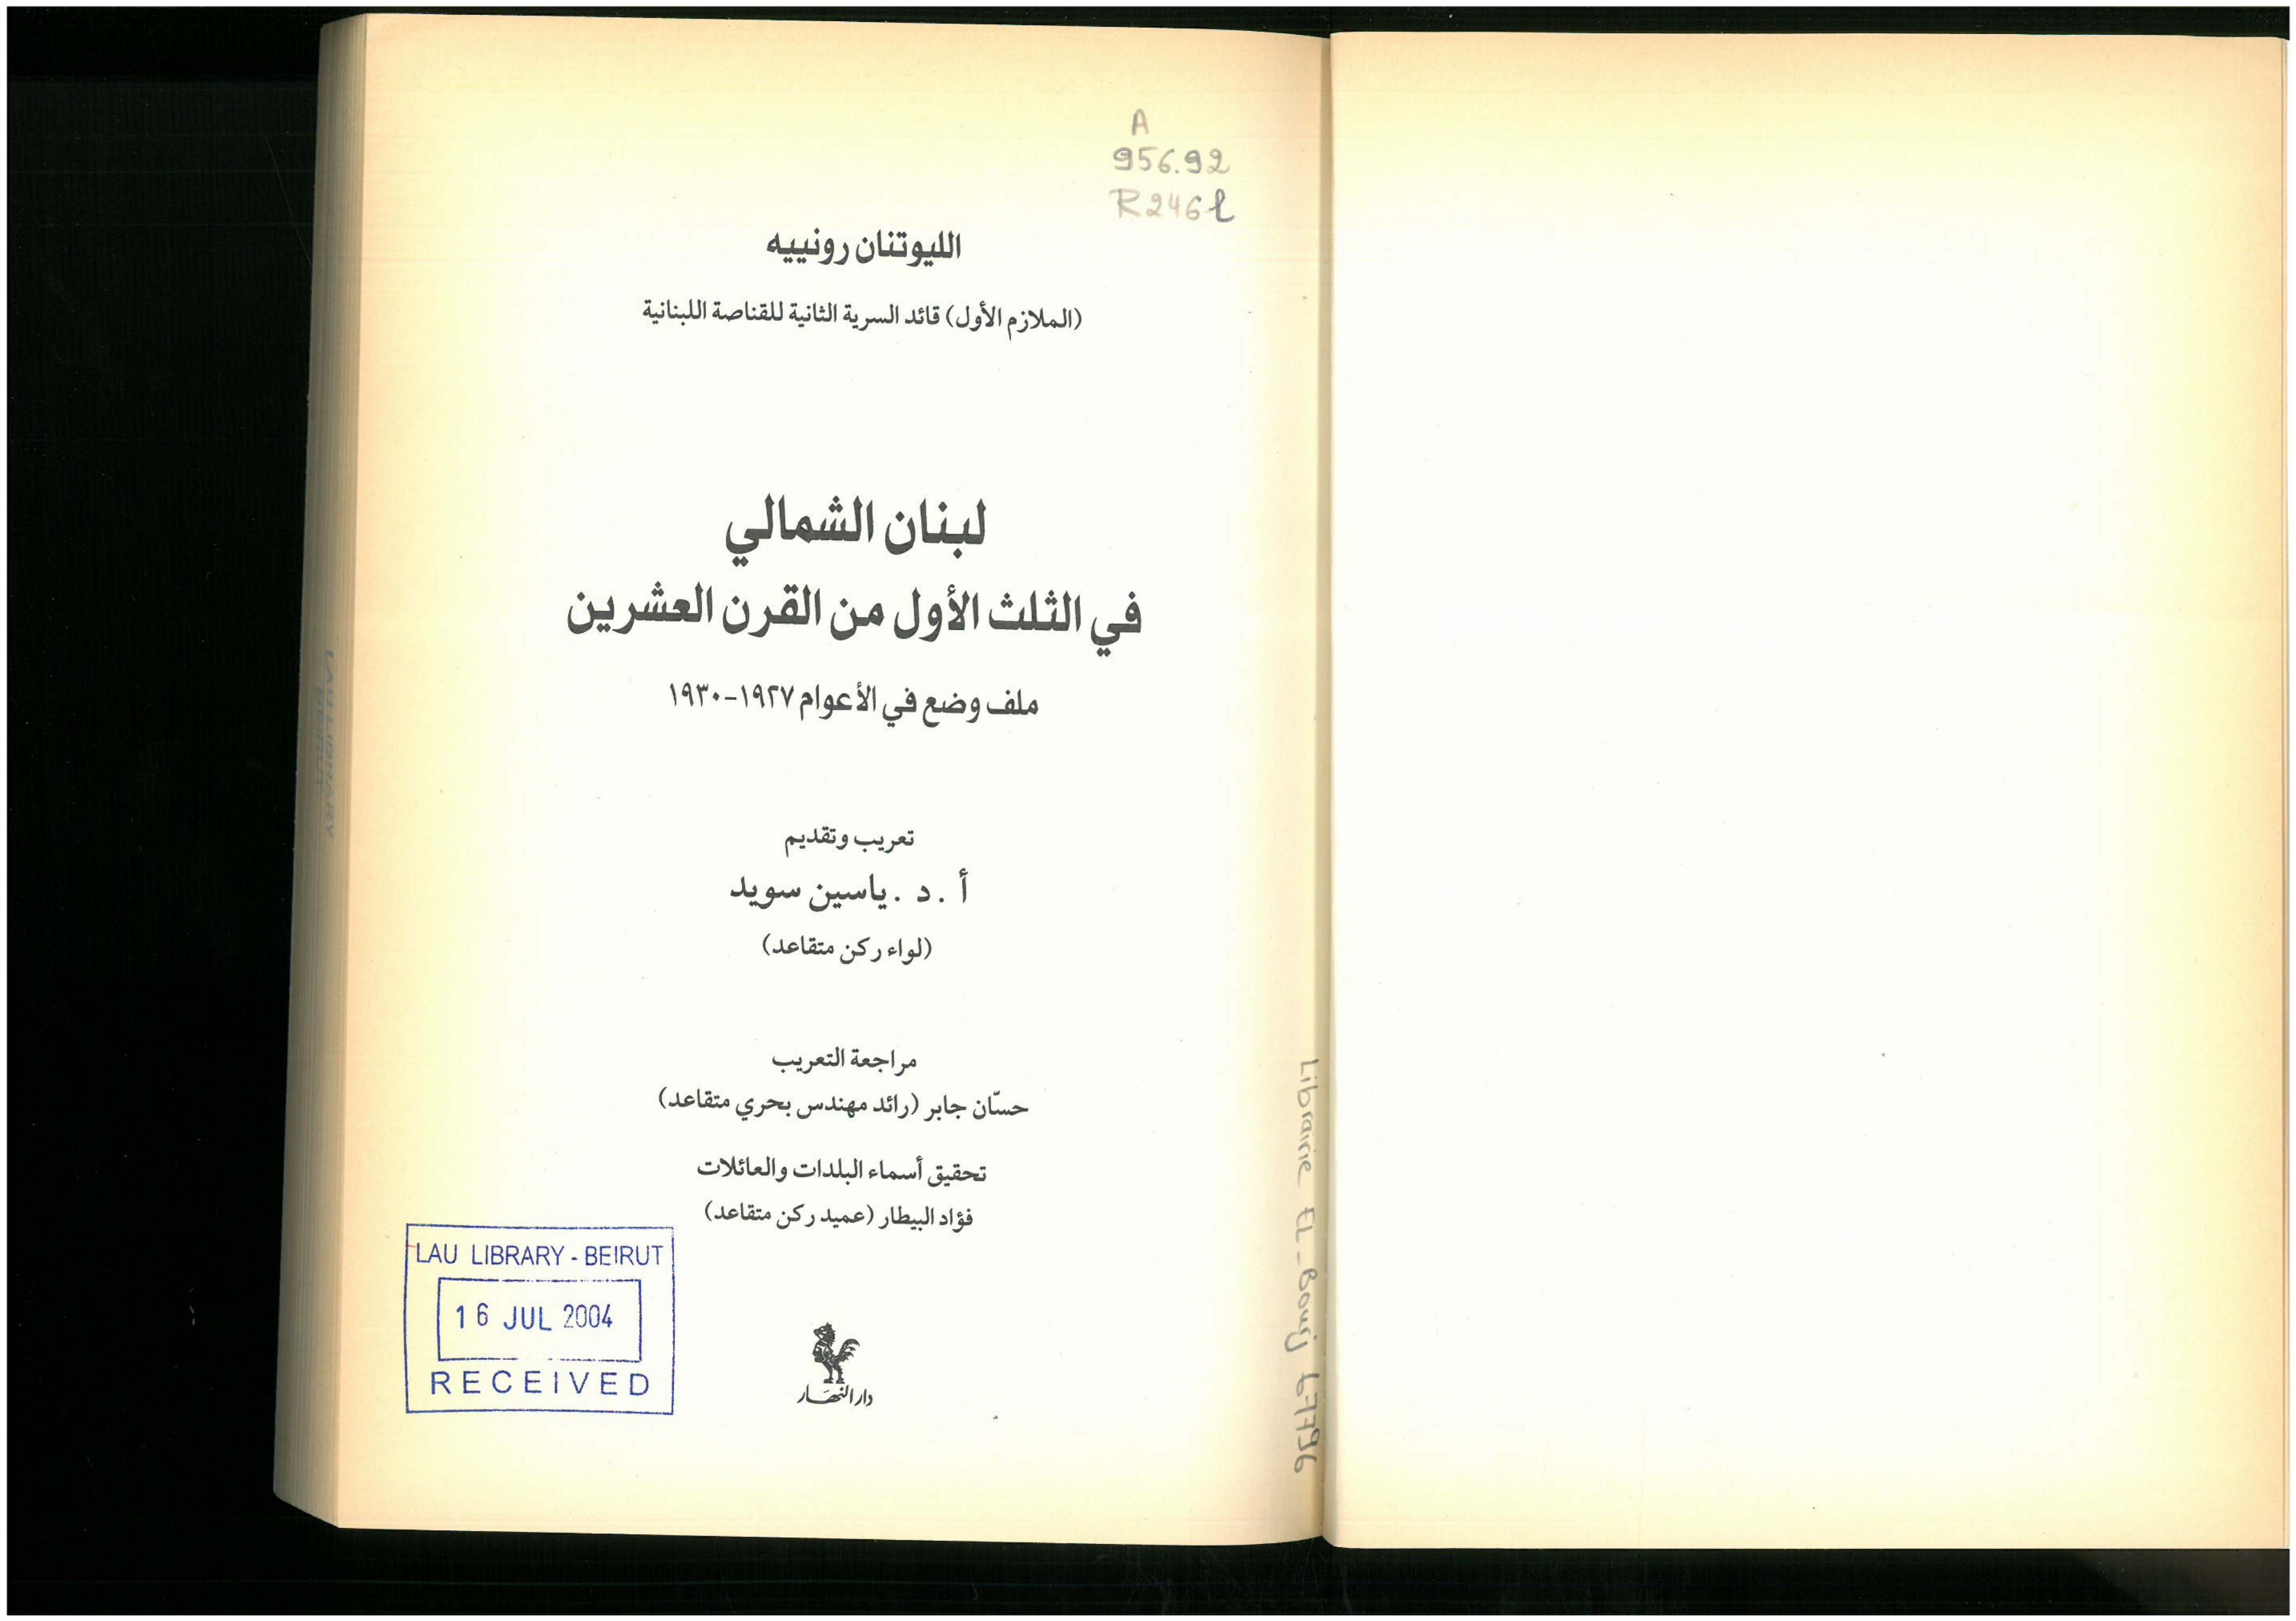 A
956.92
R246l
الليوتنان رونييه
(الملازم الأول) قائد السرية الثانية للقناصة اللبنانية
لبنان الشمالي
في الثلث الأول من القرن العشرين
ملف وضع في الأعوام ١٩٢٧-١٩٣٠
تعريب وتقديم
أ. د. ياسين سويد
(لواء ركن متقاعد)
مراجعة التعريب
حسّان جابر (رائد مهندس بحري متقاعد)
تحقيق أسماء البلدات والعائلات
فؤاد البيطار (عميد ركن متقاعد)
دار النهار
LAU LIBRARY - BEIRUT
16 JUL 2004
RECEIVED
LAU LIBRARY
BEIRUT
Librairie El-Bourj 67796